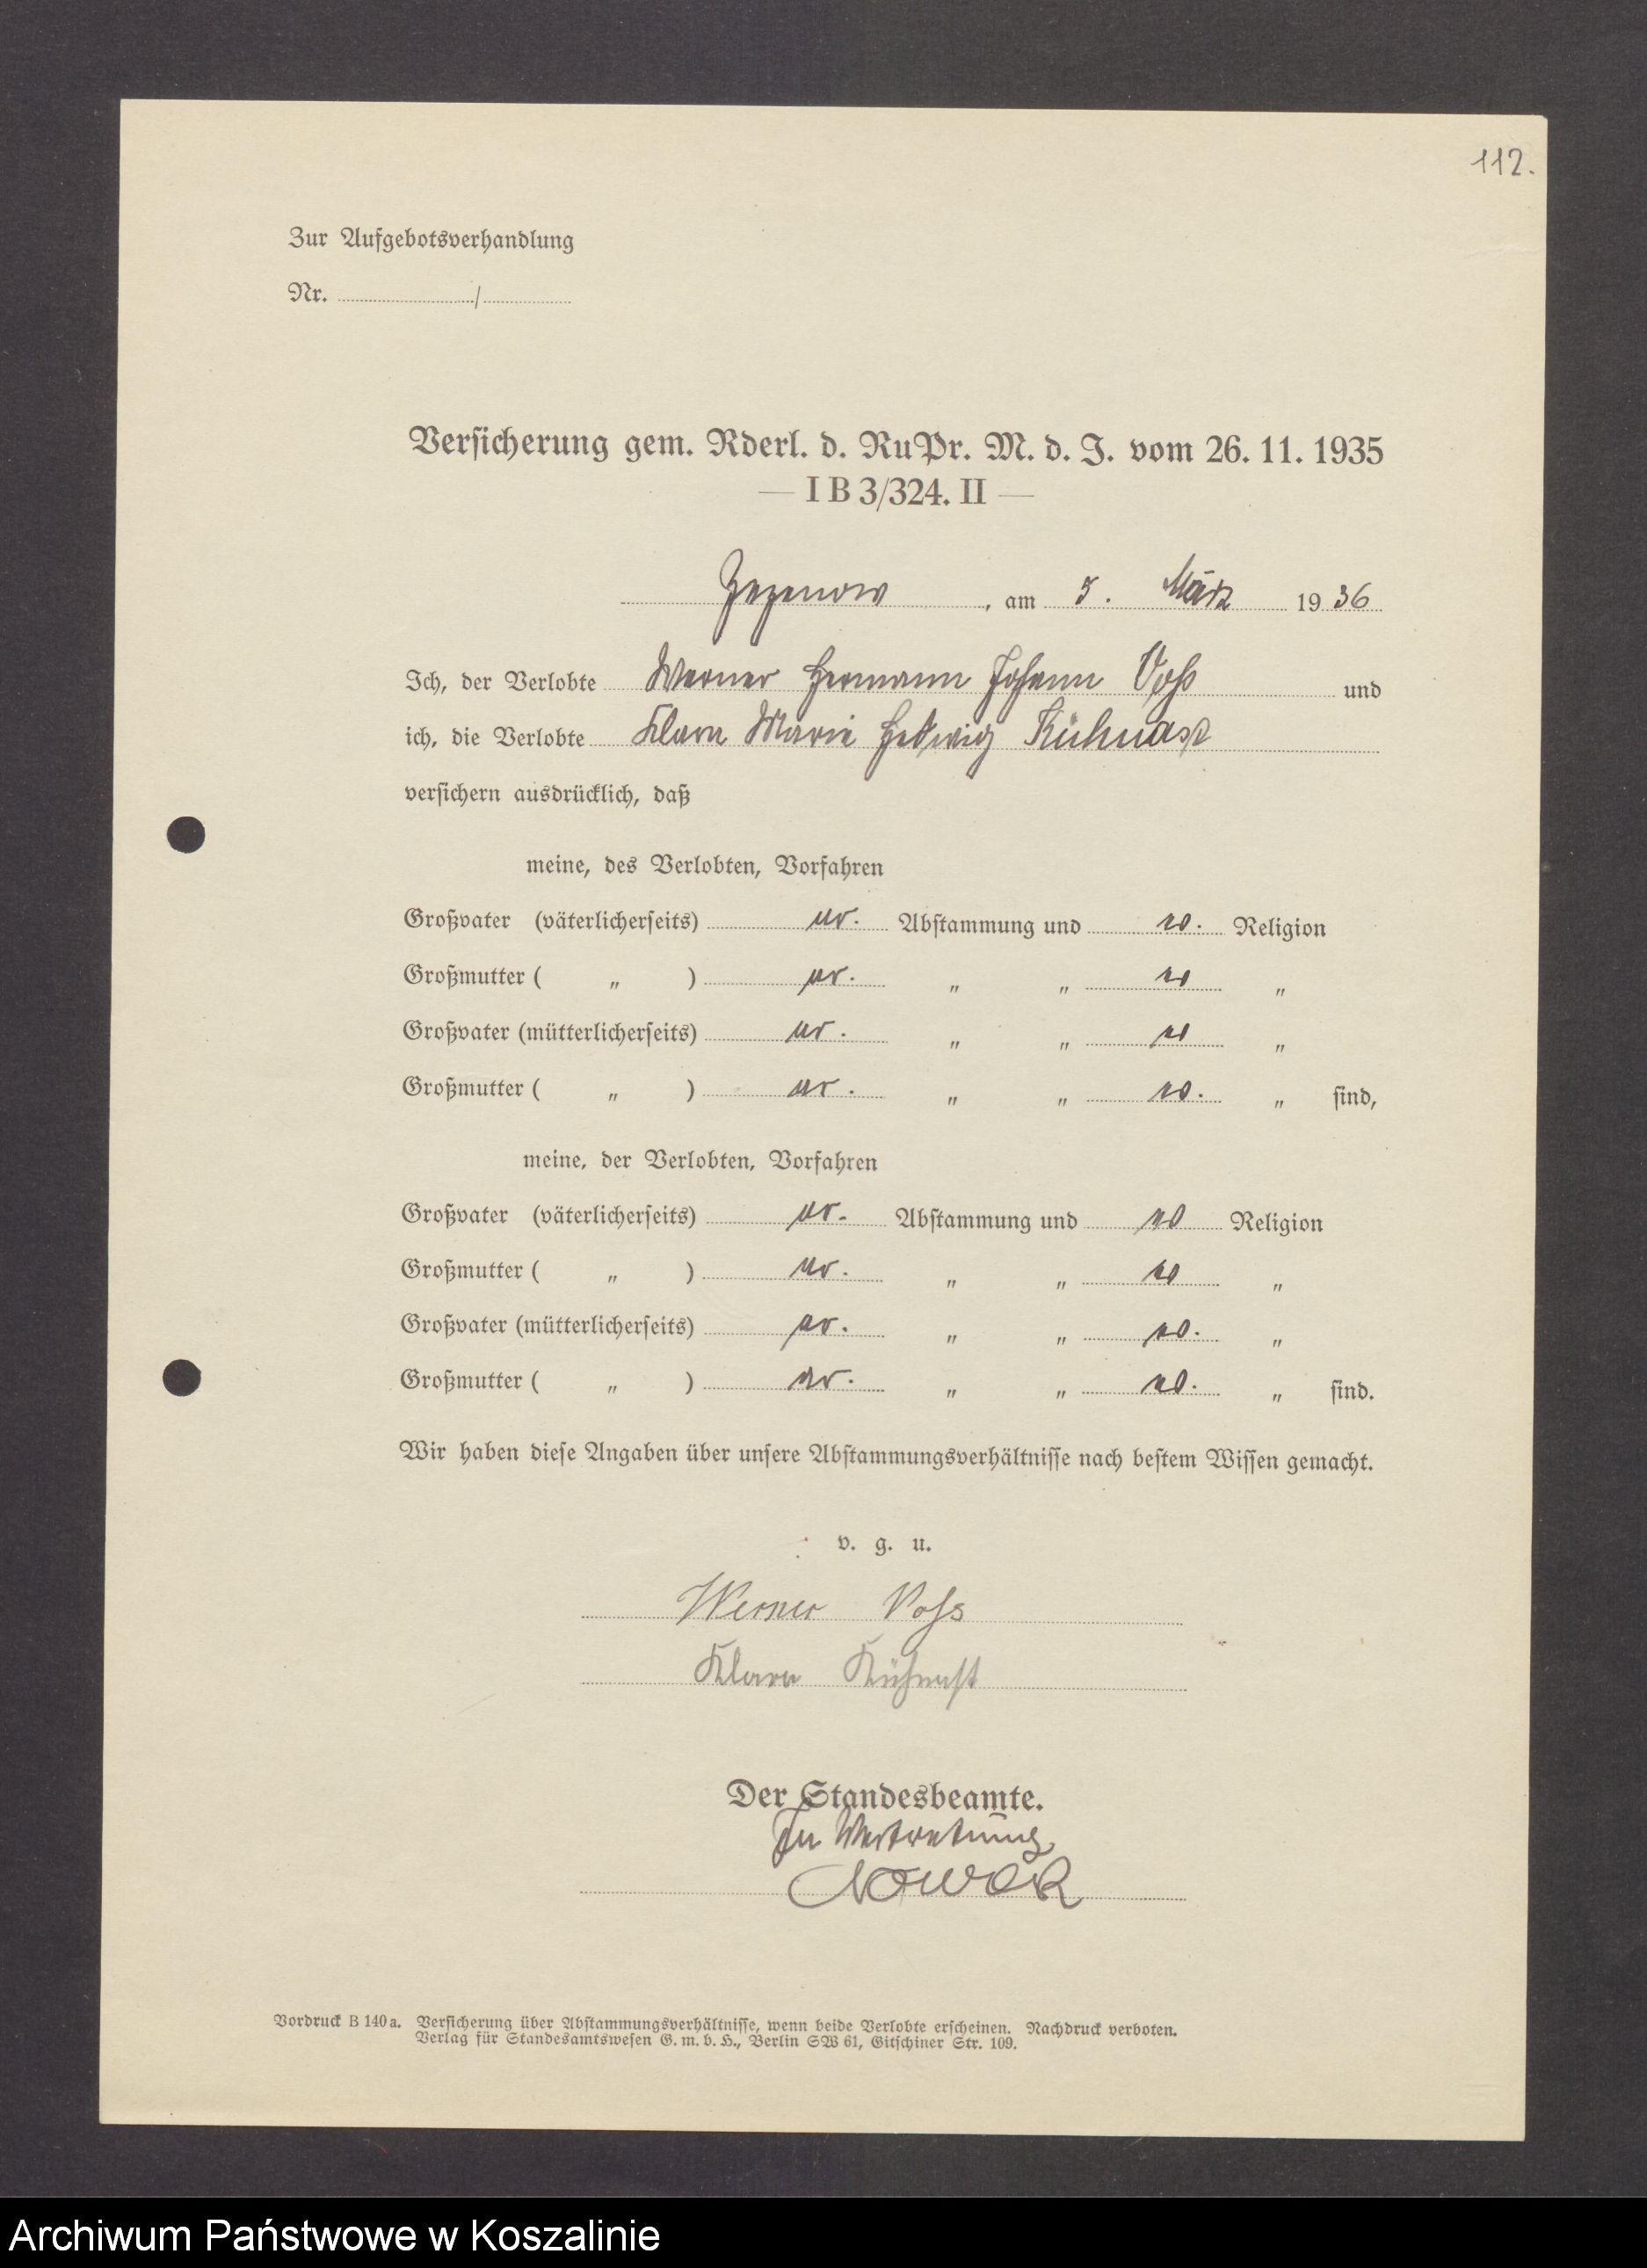 112.
Zur Aufgebotsverhandlung
Nr. /
Versicherung gem. Rderl. d. RuPr. M. d. J. vom 26. 11. 1935
— I B 3/324. II —
Zezenow, am 5. März 1936
Ich, der Verlobte Werner Hermann Johann Voß und
ich, die Verlobte Klara Marie Hedwig Kühnast
versichern ausdrücklich, daß
meine, des Verlobten, Vorfahren
Großvater (väterlicherseits) ar. Abstammung und Religion
Großmutter ( " ) ar. " " "
Großvater (mütterlicherseits) ar. " " "
Großmutter ( " ) ar. " " " sind,
meine, der Verlobten, Vorfahren
Großvater (väterlicherseits) ar. Abstammung und Religion
Großmutter ( " ) ar. " " "
Großvater (mütterlicherseits) ar. " " "
Großmutter ( " ) ar. " " " sind.
Wir haben diese Angaben über unsere Abstammungsverhältnisse nach bestem Wissen gemacht.
v. g. u.
Werner Voß
Klara Kühnast
Der Standesbeamte.
In Vertretung
Nowak
Vordruck B 140 a. Versicherung über Abstammungsverhältnisse, wenn beide Verlobte erscheinen. Nachdruck verboten.
Verlag für Standesamtswesen G. m. b. H., Berlin SW 61, Gitschiner Str. 109.
Archiwum Państwowe w Koszalinie